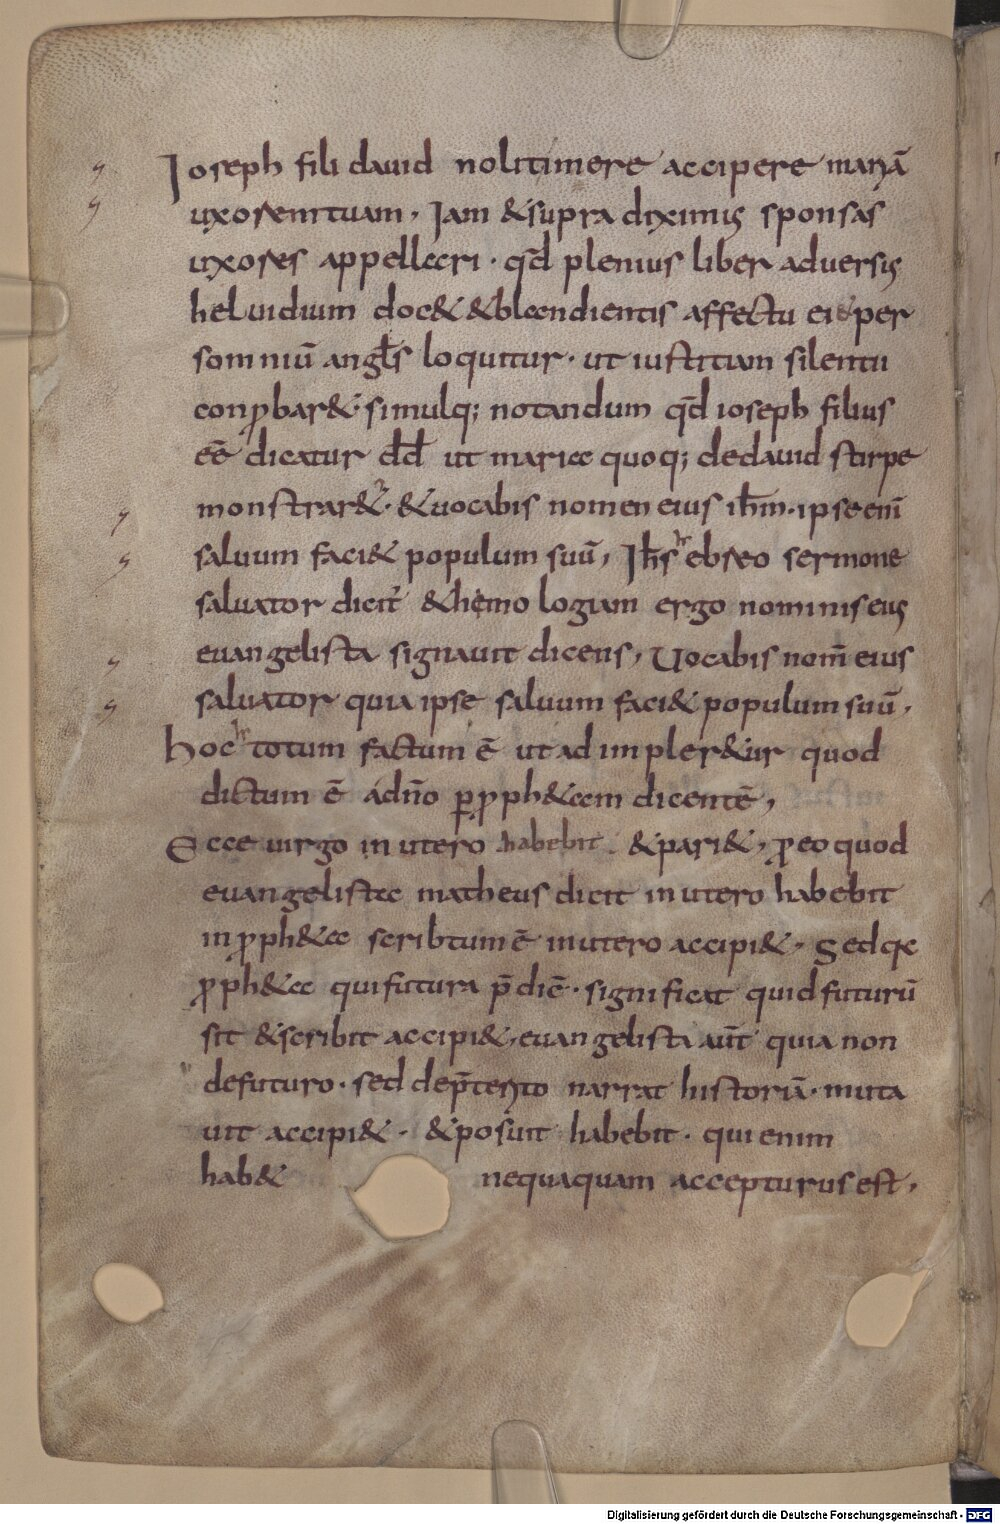 Ioseph fili dauid nolitimere accipere mariā
uxoremtuam, Iam &supra diximus sponsas
uxores appellari · qd̄ plenius liber aduersus
heluidium doc& &blandientis affectu ei per
somniū angl̄s loquitur · ut iustitiam silentii
conp̱bar& · simulq; notandum qd̄ ioseph filius
eē dicatur dd̄ ut mariae quoq; dedauid stirpe
monstrar& · &uocabis nomen eius ih̄m · ipse eni̅
saluum faci& populum suū, Ih̄s hr ebreo sermone
saluator dicit̕ &hemo logiam ergo nominis eius
euangelista signauit dicens, Uocabis nom̄ eius
saluator quia ipse saluum faci& populum suū,
hoc hr totum factum ē ut ad impler&ur quod
dictum ē adn̄o ꝑ ꝓph&am dicentē,
Ecce uirgo in utero habebit &pari&, ꝓ eo quod
euangelista matheus dicit in utero habebit
in ꝓph&a scribtum ē in utero accipi& · Sed qa
ꝓph&a qui futura p̄dic̄ · significat quid futurū
sit &scribit accipi&, euangelista aūt quia non
defuturo · sed dep̄terito narrat historiā · muta
uit accipi& · &posuit habebit · qui enim
hab& nequaquam accepturus est,
Digitalisierung gefördert durch die Deutsche Forschungsgemeinschaft - DFG